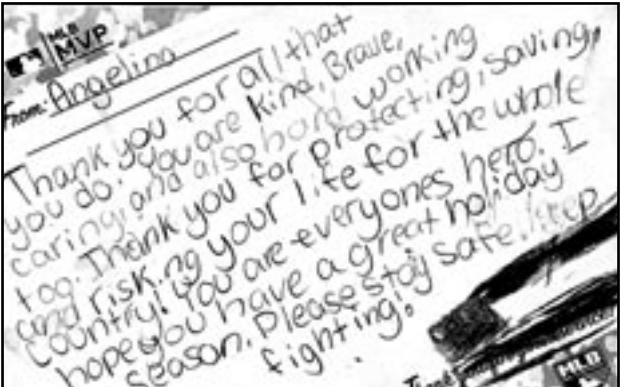 MLB
MVP
From: Angelina
Thank you for all that
you do. You are Kind, Brave,
caring, and also hard working
too. Thank you for protecting, saving,
and risking your life for the whole
country! You are everyones hero. I
hope you have a great holiday
season. Please stay safe. Keep
fighting!
MLB